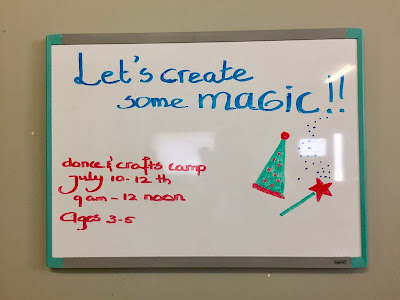 Let's create
some MAGIC!!
dance & crafts camp
July 10-12th
9am - 12 noon
Ages 3-5